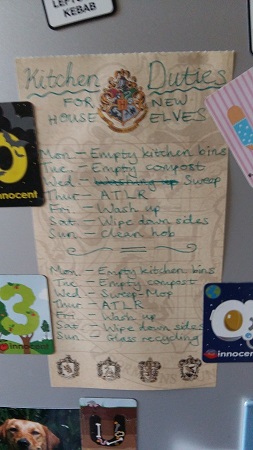 LEFTOVER
KEBAB
Kitchen Duties
FOR NEW
HOUSE ELVES
Mon – Empty kitchen bins
Tue – Empty compost
Wed – Washing up Sweep
Thur – ATLR
Fri – Wash up
Sat – Wipe down sides
Sun – Clean hob
ATLR
Mon – Empty kitchen bins
Tue – Empty compost
Wed – Sweep Mop
Thur – ATLR
Fri – Wash up
Sat – Wipe down sides
Sun – Glass recycling
9
innocent
3
innocent
innocent
U